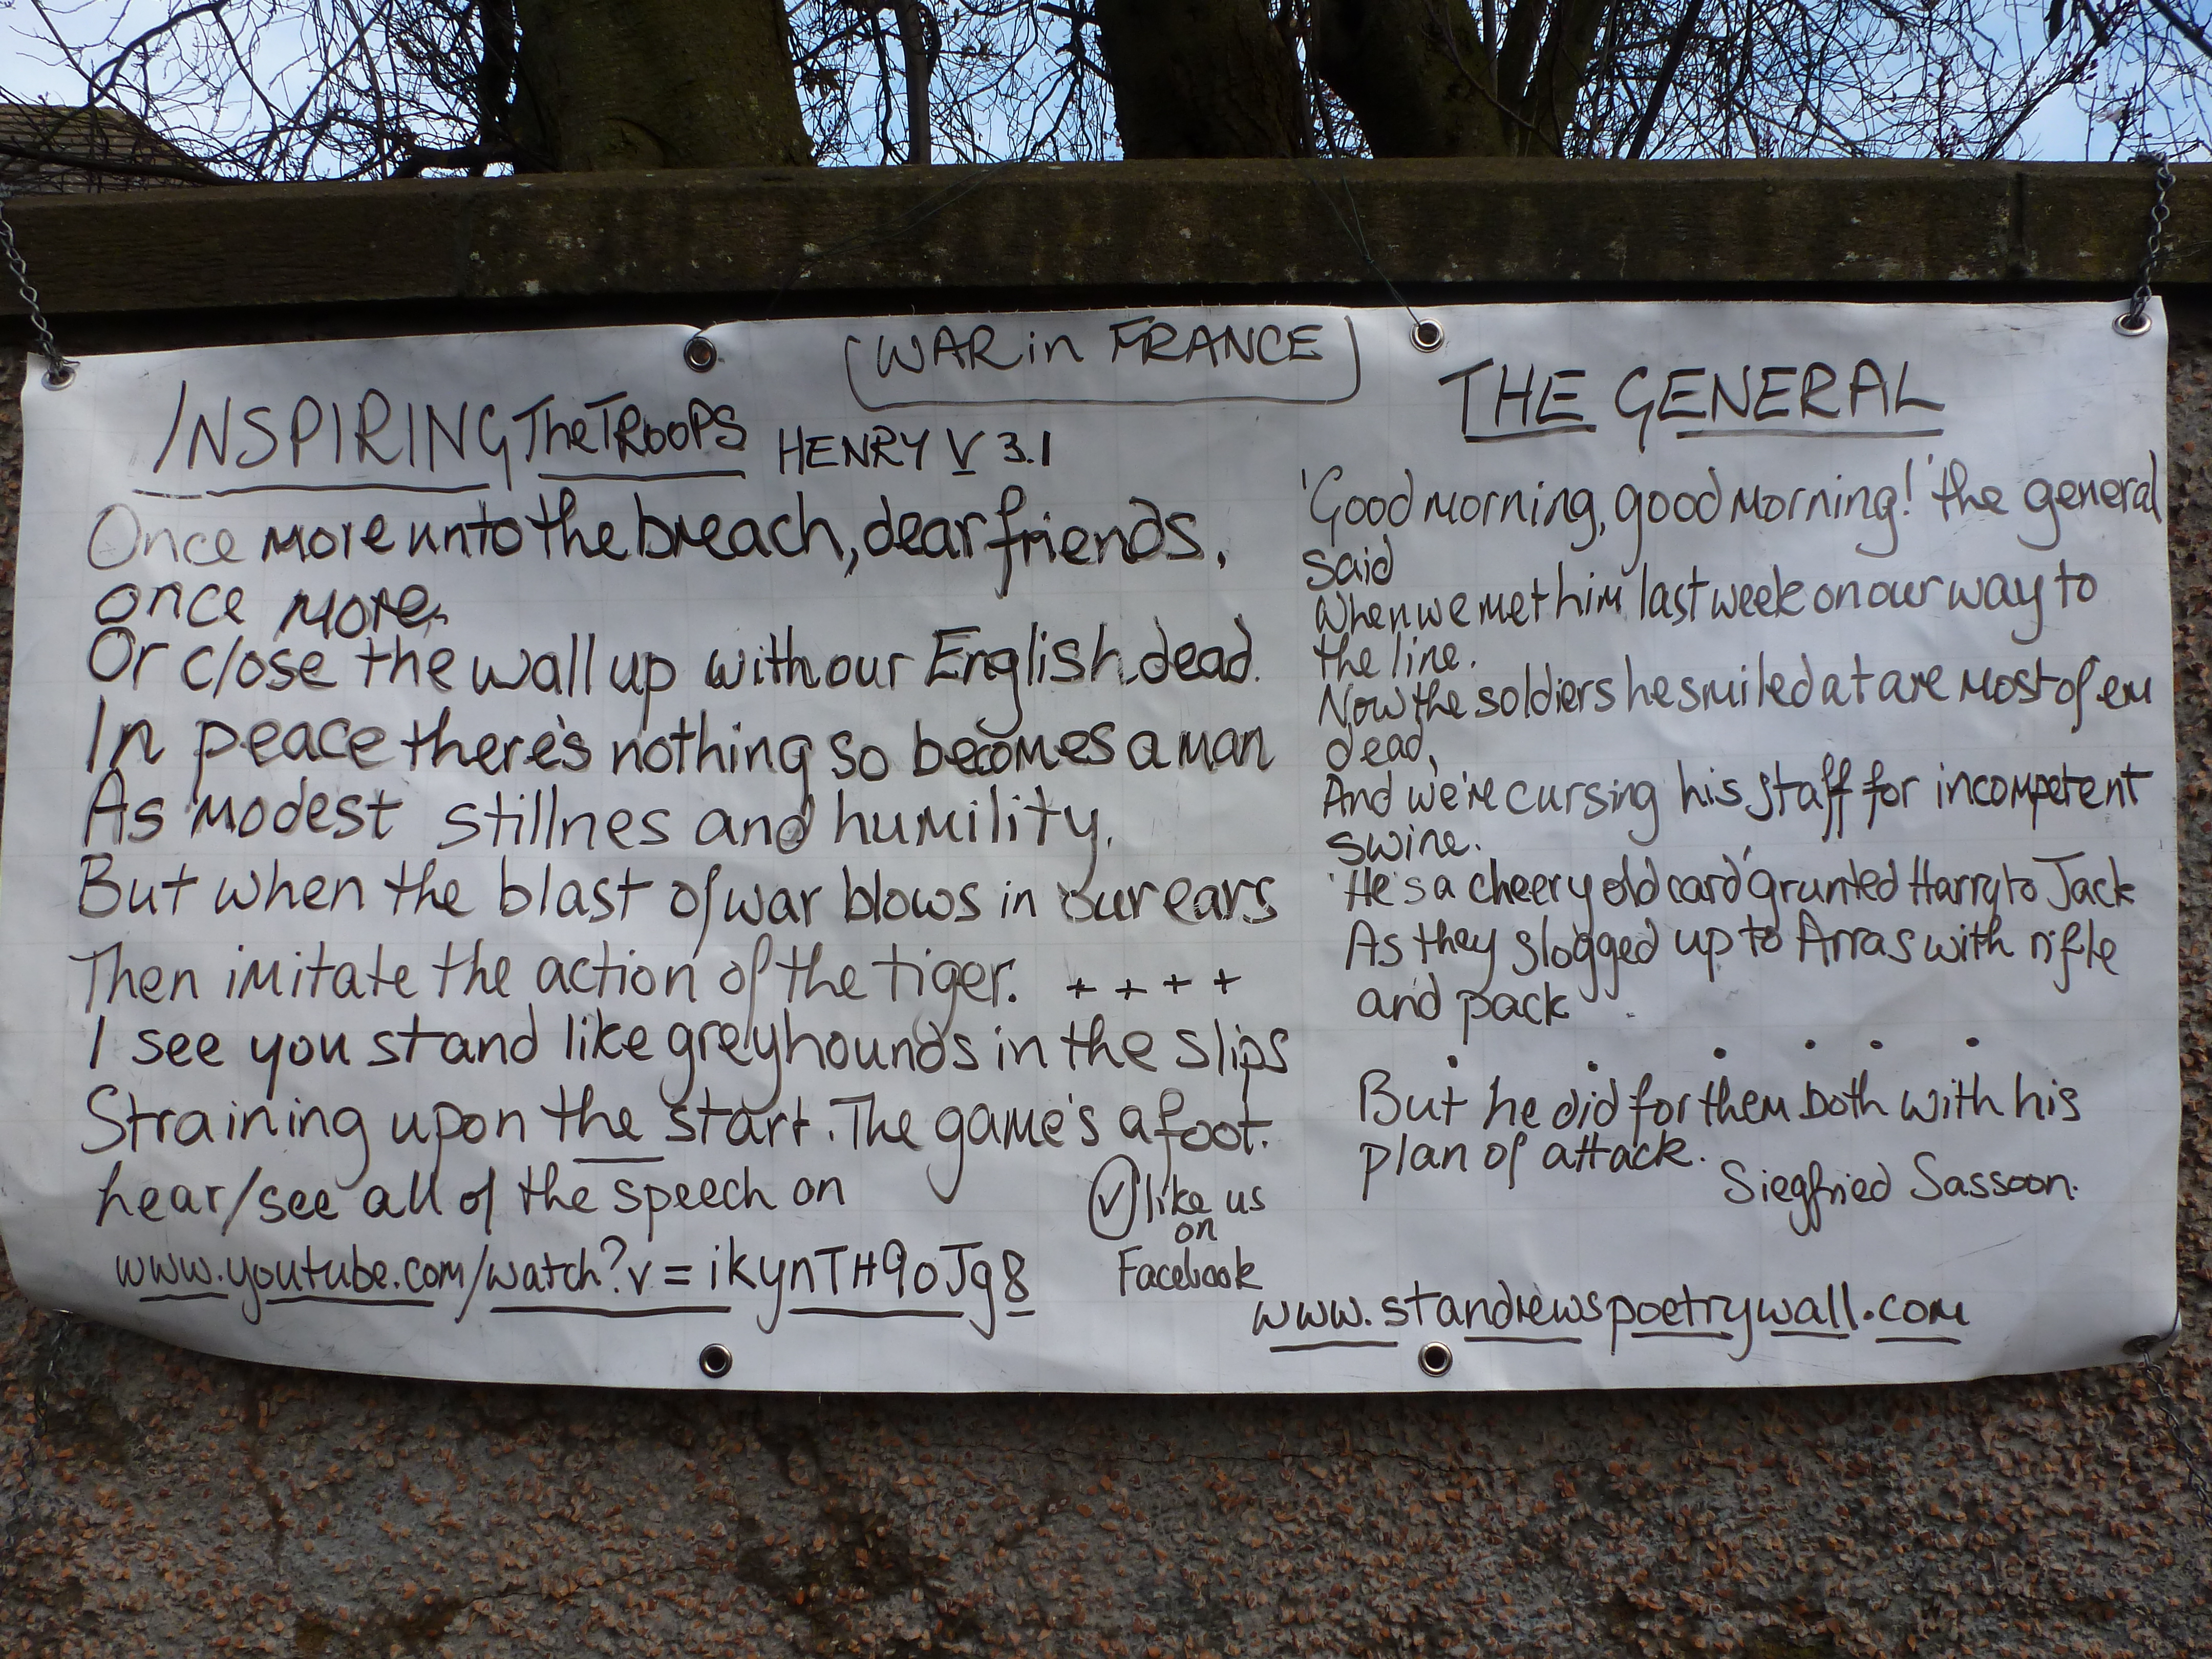 (WAR in FRANCE)
INSPIRING The TROOPS HENRY V 3.1
Once more unto the breach, dear friends,
once more,
Or close the wall up with our English dead.
In peace there's nothing so becomes a man
As modest stillnes and humility.
But when the blast of war blows in our ears
Then imitate the action of the tiger. + + + +
I see you stand like greyhounds in the slips
Straining upon the start. The game's afoot.
hear/see all of the speech on
www.youtube.com/watch?v=ikynTH9oJg8
✓ like us
on
Facebook
THE GENERAL
'Good morning, good morning!' the general
said
When we met him last week on our way to
the line.
Now the soldiers he smiled at are most of em
dead,
And we're cursing his staff for incompetent
swine.
'He's a cheery old card' grunted Harry to Jack
As they slogged up to Arras with rifle
and pack
. . . . . .
But he did for them both with his
plan of attack.
Siegfried Sassoon.
www.standrewspoetrywall.com